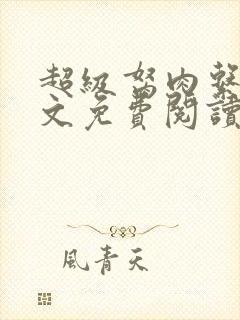 超級弩肉
文免費閱讀
風青天